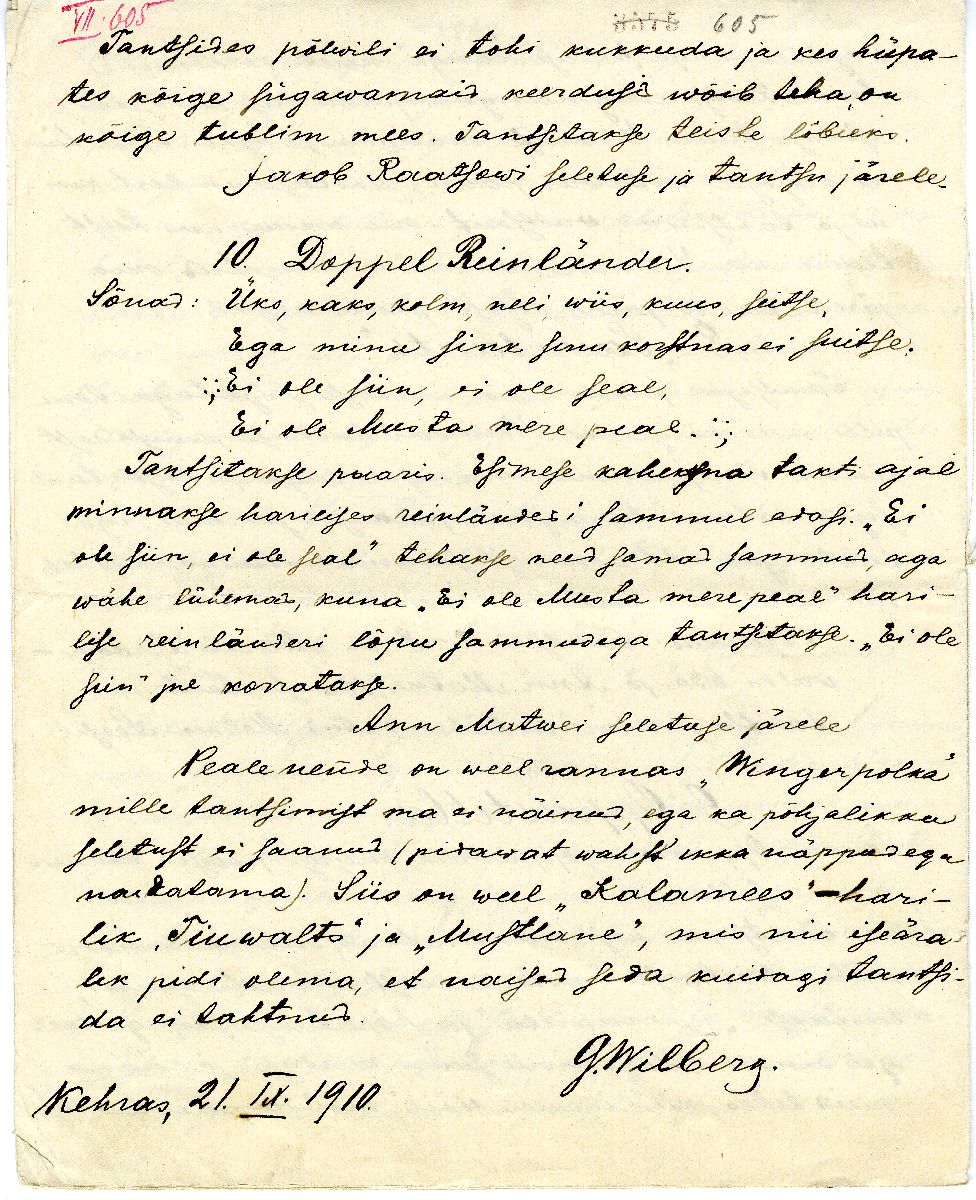 VII. 605
605
Tantsides põlwili ei tohi kukkuda ja kes hüpa-
tes kõige sügawamaid keerdusid wõib teha, on
kõige tublim mees. Tantsitakse teiste lõbuks.
Jakob Raatsowi seletuse ja tantsu järele.
10. Doppel Reinländer.
Sõnad: Üks, kaks, kolm, neli, wiis, kuus, seitse,
Ega minu sink sinu korstnas ei suitse.
:,: Ei ole siin, ei ole seal,
Ei ole Musta mere peal. :,:
Tantsitakse paaris. Esimese kaheksna takti ajal
minnakse harilises reinländeri sammul edasi. „Ei
ole siin, ei ole seal" tehakse need samad sammud, aga
wähe lühemad, kuna „Ei ole Musta mere peal" hari-
lise reinländeri lõpu sammudega tantsitakse. „Ei ole
siin" jne korratakse.
Ann Matwei seletuse järele
Peale nende on weel rannas „Wingerpolka"
mille tantsimist ma ei näinud, ega ka põhjalikku
seletust ei saanud (pidawat wahest ikka näppudega
naksatama). Siis on weel „Kalamees" – hari-
lik „Tiuwalts" ja „Mustlane", mis nii iseära-
lik pidi olema, et naised seda kuidagi tantsi-
da ei tahtnud.
G. Wilberg.
Kehras, 21. IX. 1910.